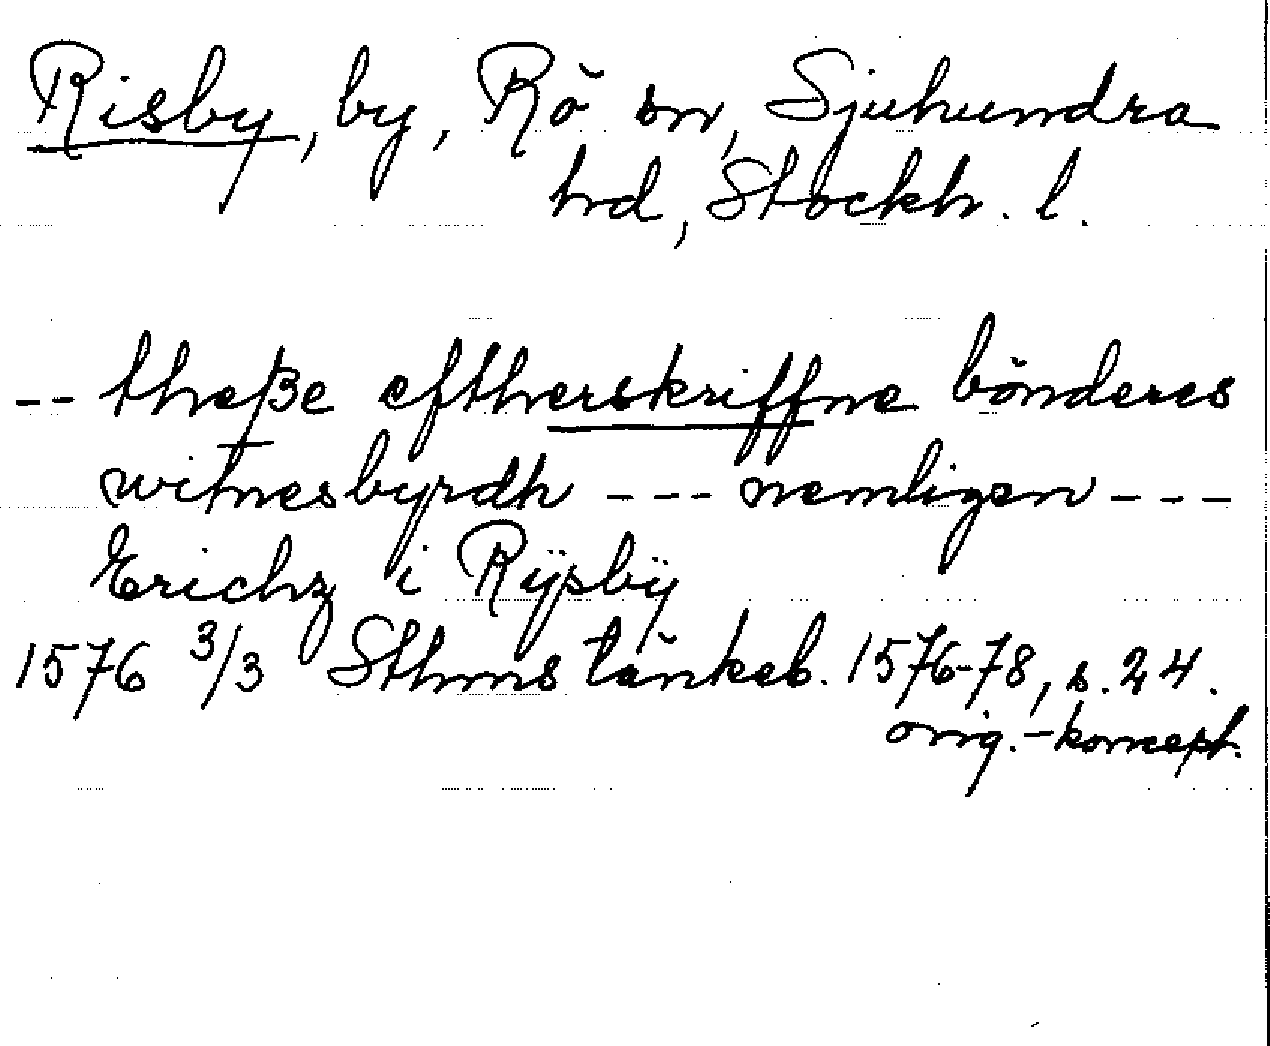 Risby, by, Rö sn, Sjuhundra
hrd, Stockh. l.
-- theße eftherskriffne bönderes
witnesbyrdh --- nemligen ---
Erichz i Rÿsbÿ
1576 3/3 Sthms tänkeb. 1576-78, s. 24.
orig.-koncept.